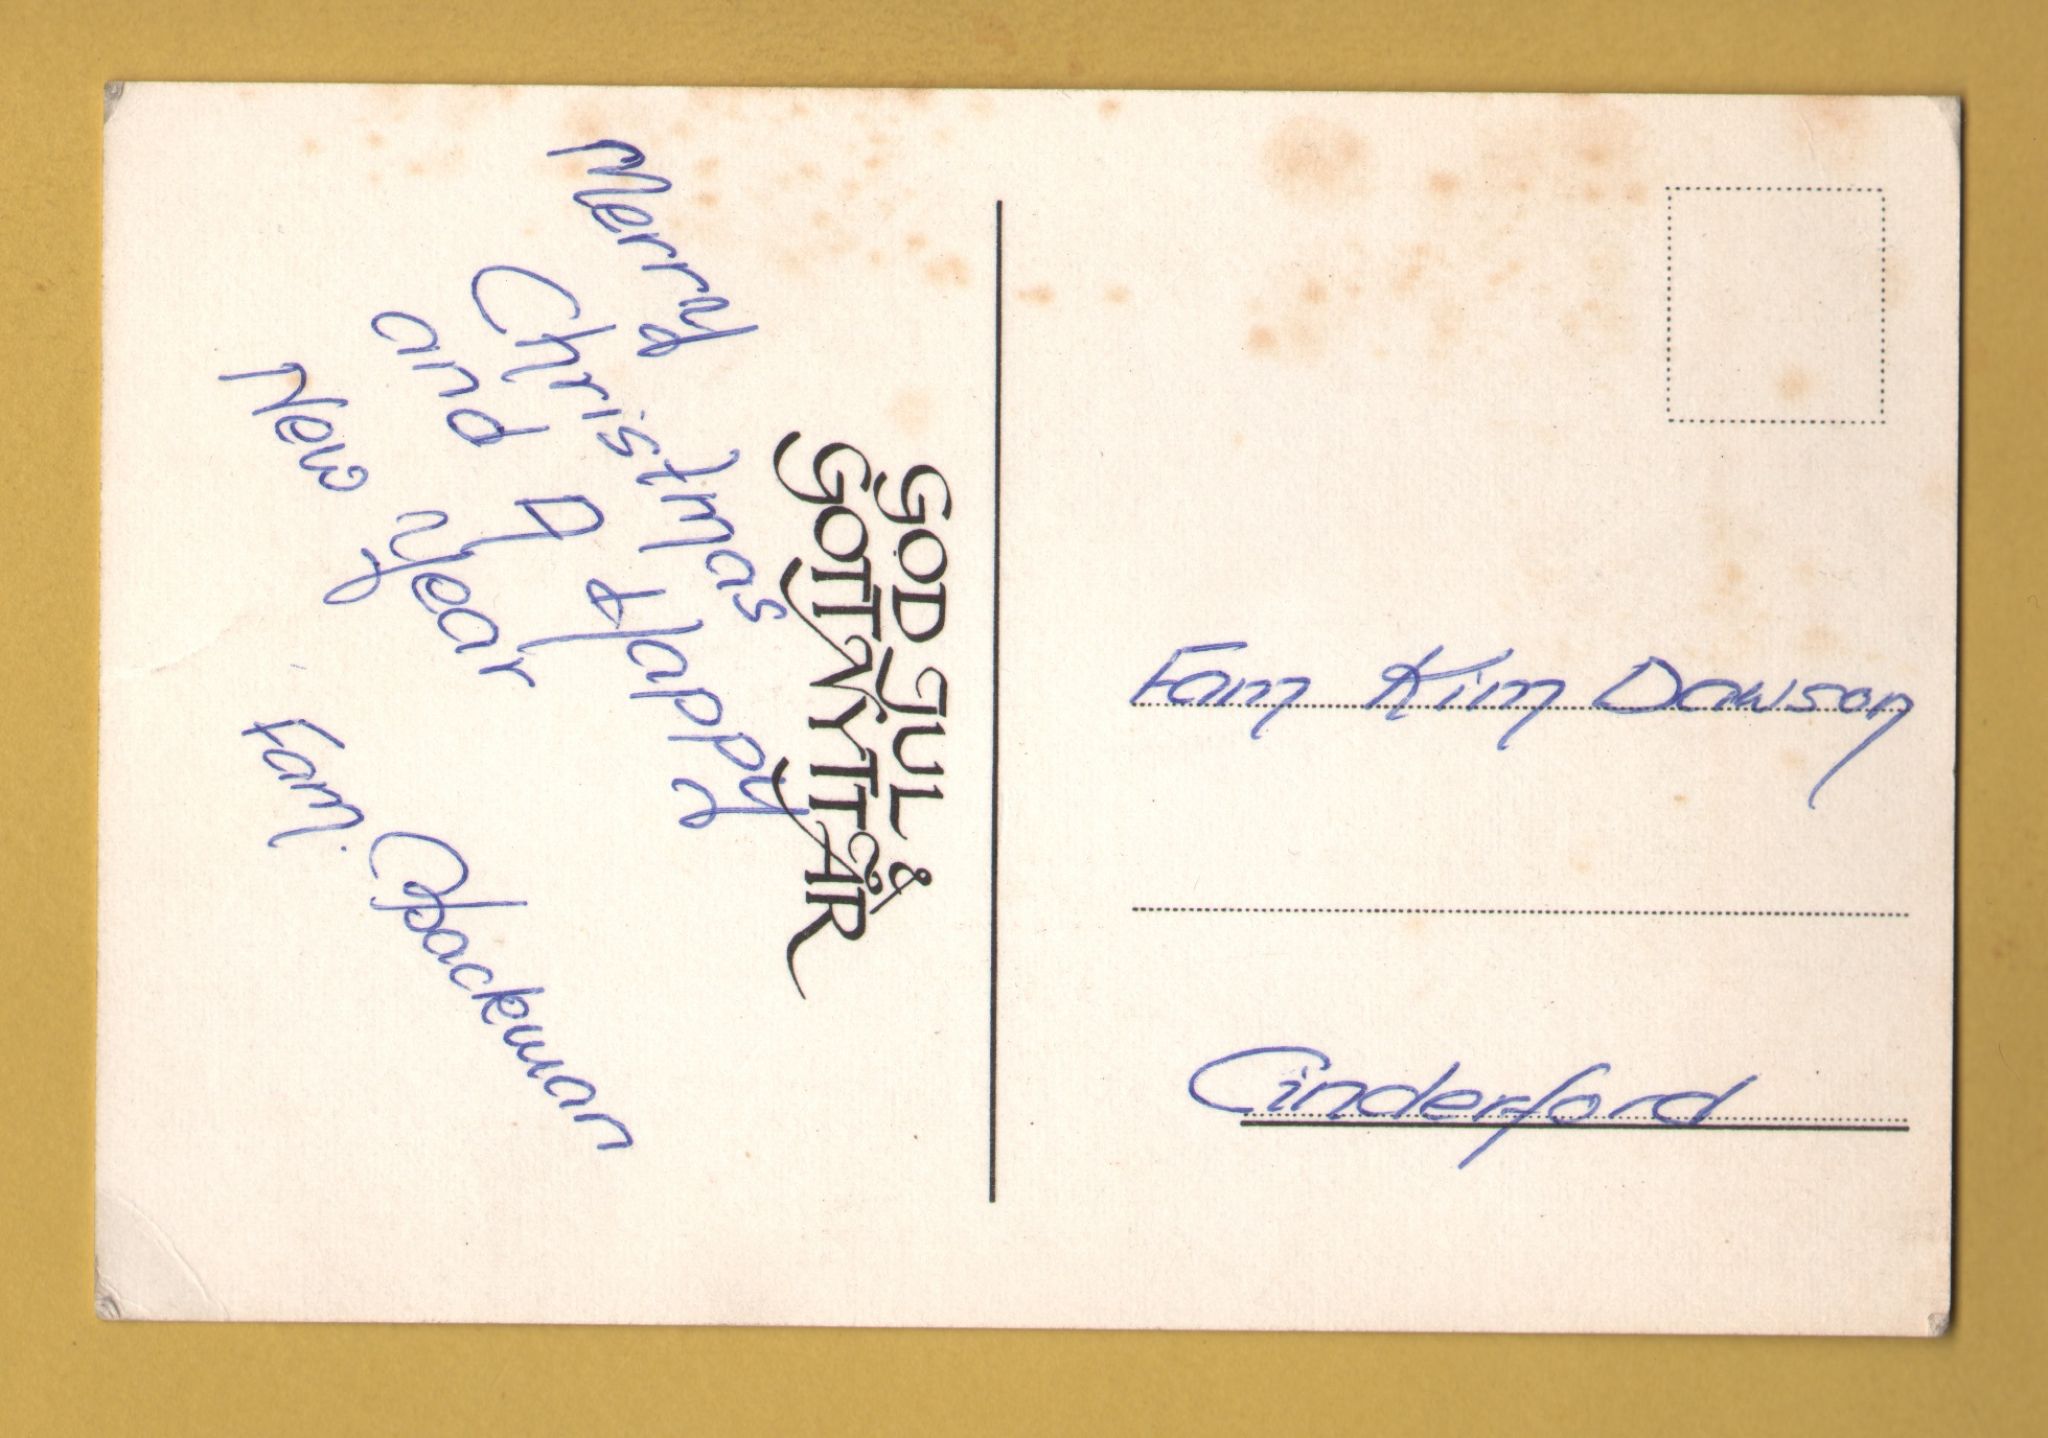 Merry
Christmas
and A Happy
New Year
Fam. Backman
GOD JUL &
GOTT NYTT ÅR
Fam Kim Dawson
Cinderford